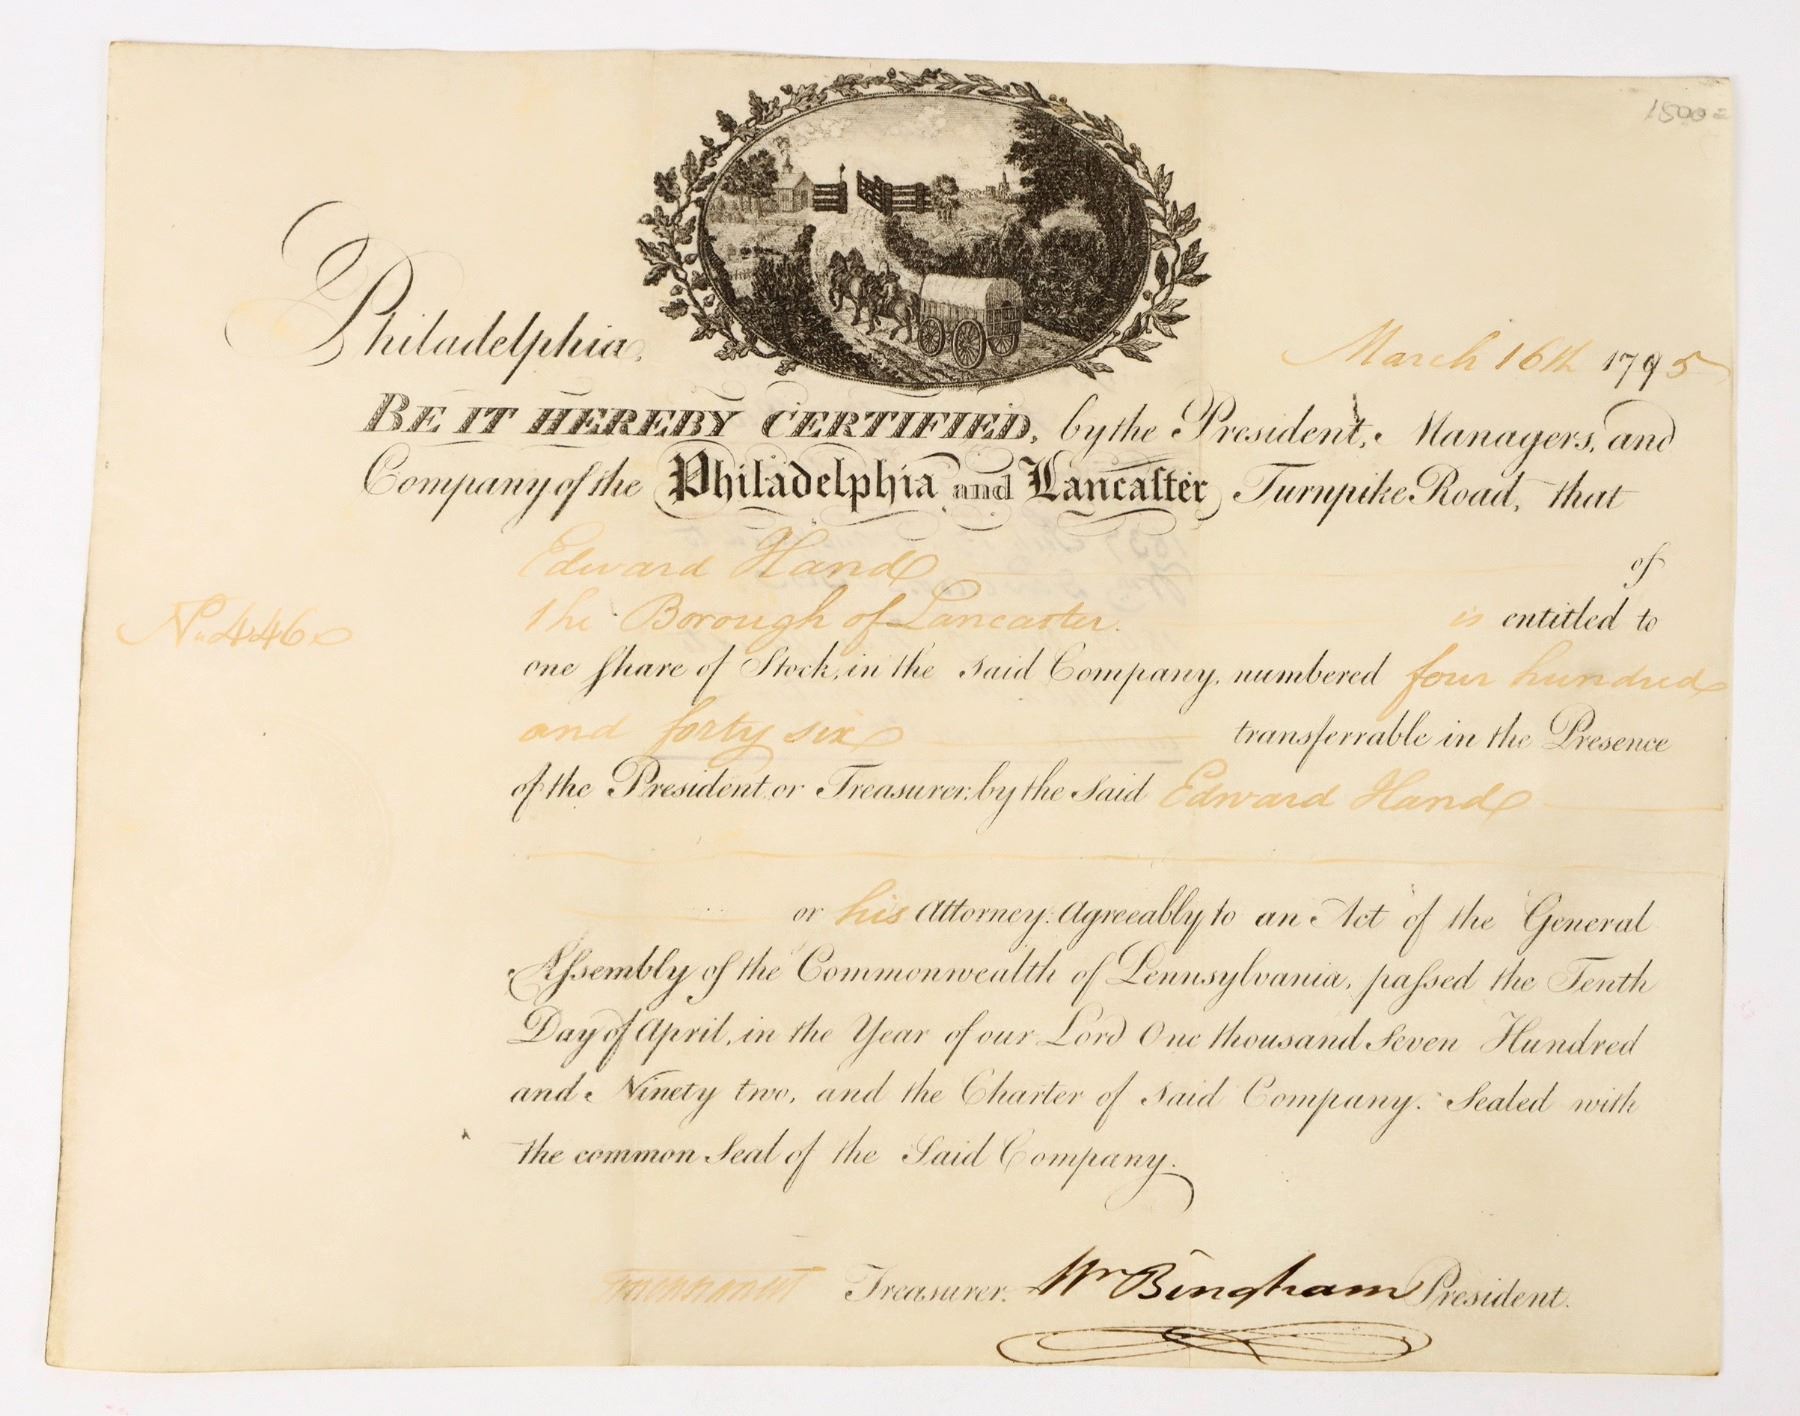 1500=
Philadelphia, March 16th 1795
BE IT HEREBY CERTIFIED, by the President, Managers, and
Company of the Philadelphia and Lancaſter Turnpike Road, that
Edward Hand of
the Borough of Lancaster. is entitled to
No. 446
one Share of Stock, in the said Company, numbered four hundred
and forty six transferrable in the Presence
of the President, or Treasurer, by the said Edward Hand
or his Attorney. Agreeably to an Act of the General
Aſsembly of the Commonwealth of Pennsylvania, paſsed the Tenth
Day of April, in the Year of our Lord One thousand Seven Hundred
and Ninety two, and the Charter of said Company. Sealed with
the common Seal of the Said Company.
Treasurer. Wm Bingham President.